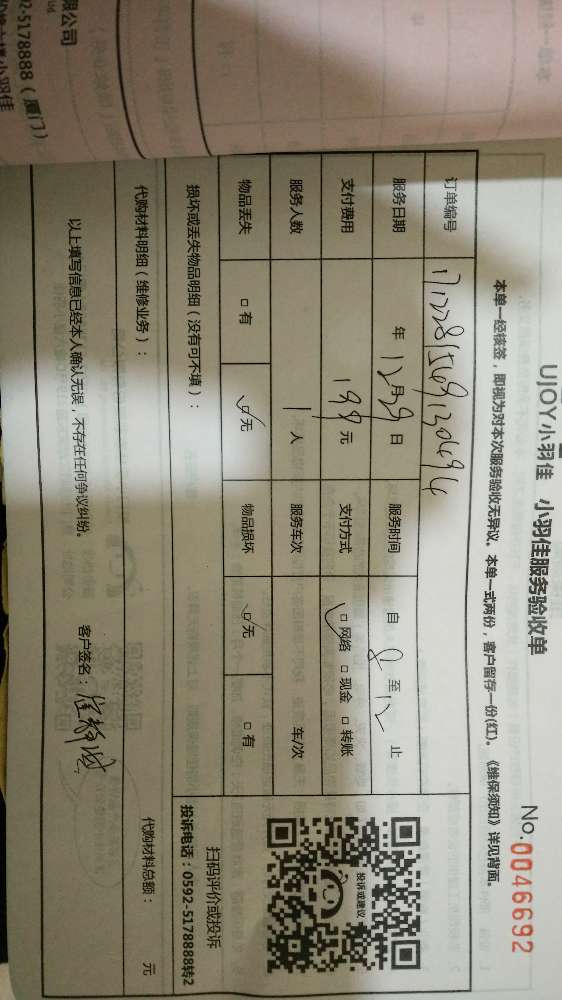 限公司
92-5178888（厦门）
UJOY小羽佳 小羽佳服务验收单
No.0046692
本单一经核签，即视为对本次服务验收无异议。本单一式两份，客户留存一份(红)。《维保须知》详见背面。
订单编号
服务日期 年 12月29日 服务时间 自 8 至 12 止
支付费用 198 元 支付方式 □网络 □现金 □转账
服务人数 1 人 服务车次 车/次
物品丢失 □有 □无 物品损坏 □无 □有
投诉或建议
扫码评价或投诉
投诉电话：0592-5178888转2
损坏或丢失物品明细（没有可不填）：
代购材料明细（维修业务）： 代购材料总额： 元
以上填写信息已经本人确认无误，不存在任何争议纠纷。 客户签名：